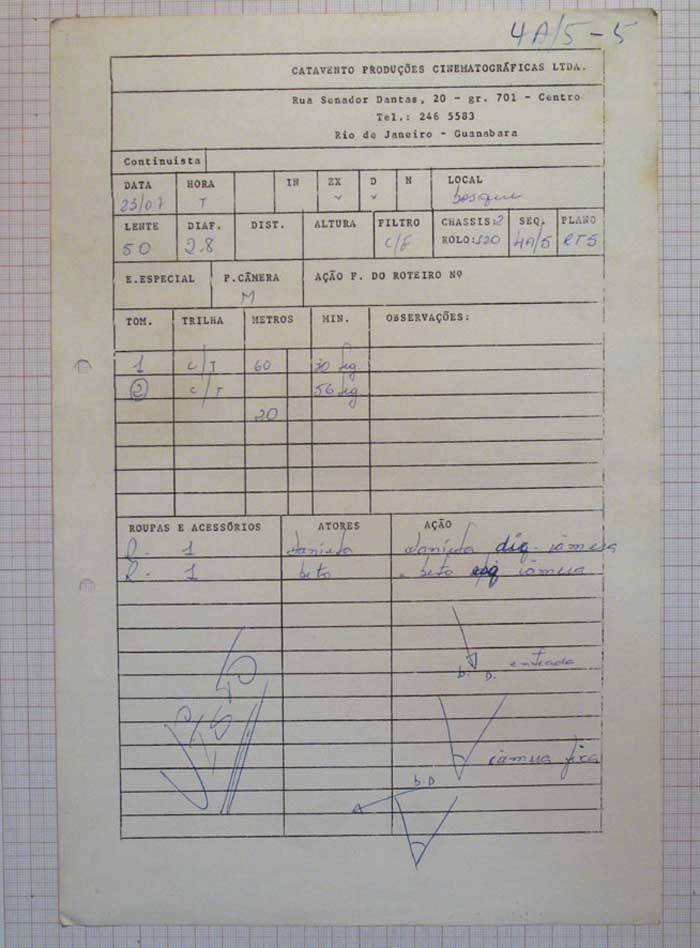 4A/5-5
CATAVENTO PRODUÇÕES CINEMATOGRÁFICAS LTDA.
Rua Senador Dantas, 20 - gr. 701 - Centro
Tel.: 246 5583
Rio de Janeiro - Guanabara
Continuista
DATA HORA IN EX D N LOCAL
23/07 T bosque
LENTE DIAF. DIST. ALTURA FILTRO CHASSIS:2 SEQ. PLANO
50 2.8 ROLO:120 4A/5 RT5
E.ESPECIAL P.CÂMERA AÇÃO F. DO ROTEIRO Nº
M
TOM. TRILHA METROS MIN. OBSERVAÇÕES:
1 C/T 60 30
2 C/T 56
20
ROUPAS E ACESSÓRIOS ATORES AÇÃO
R. 1 daniela daniela
R. 1 beto beto
b. D. entrada
VISTO
câmera fixa
b.D